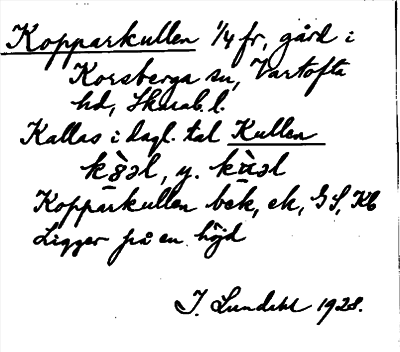 Kopparkullen 1/4 fr, gård i
Korsberga sn, Vartofta
hd, Skarab. l.
Kallas i dagl. tal Kullen
Kopparkullen bek, ek, GS, Kb
Ligger på en höjd
J. Lundahl 1928.